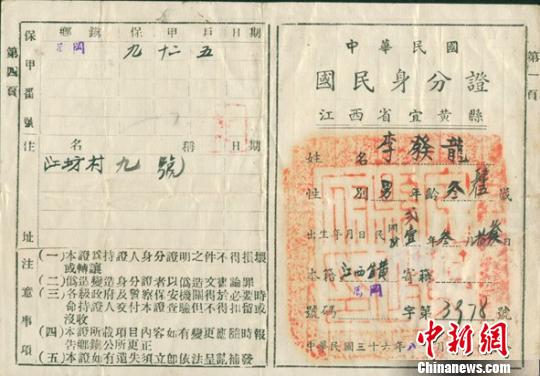 第一頁
中華民國
國民身分證
江西省宜黃縣
姓名 李發龍
性別 男 年齡 叁 歲
出生年月日 民國前 年 叁 月 日
本籍 江西宜黃 寄籍
號碼 字第 3978 號
中華民國三十六年八月
第四頁
保甲番號 鄉鎮 保 甲 戶 日期
鳳岡 九 十二 五
住址 名稱 日期
江坊村九號
注意事項
(一)本證為持證人身分證明之件不得損壞
或轉讓
(二)偽造變造身分證者以偽造文書論罪
(三)各級政府及警察保安機關得於必要時
命持證人交付本證查驗但不得扣留或
沒收
(四)本證所載項目內容如有變更應隨時報
告鄉鎮公所更正
(五)本證如有遺失須立即依法呈請補發
中新网
www.chinanews.com